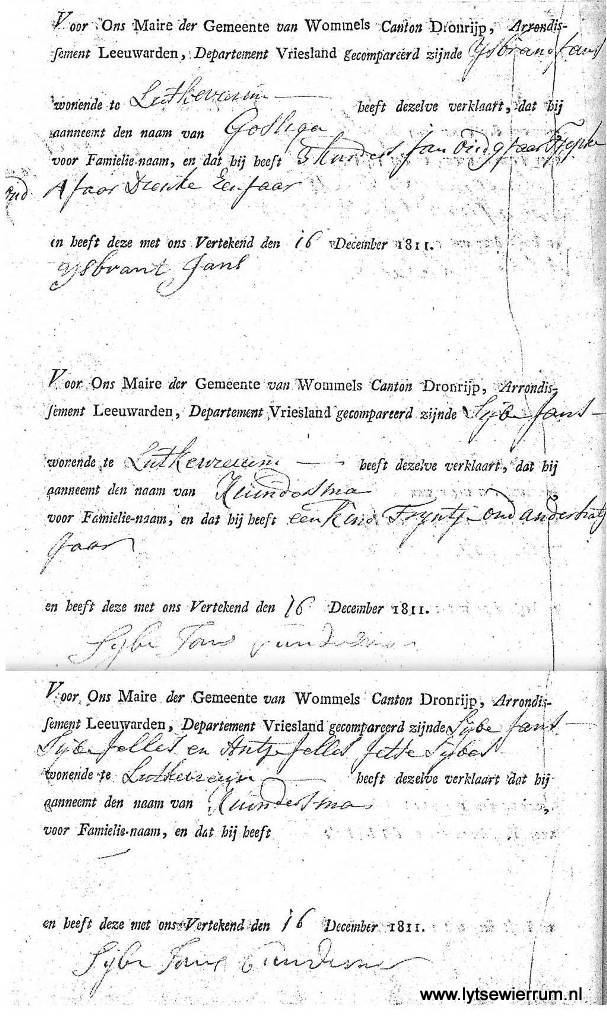 Voor Ons Maire der Gemeente van Wommels Canton Dronrijp, Arrondis-
sement Leeuwarden, Departement Vriesland gecompareerd zijnde Ysbrant Jans
wonende te Lutkewierum heeft dezelve verklaart, dat hij
aanneemt den naam van Goslega
voor Familie-naam, en dat hij heeft 3 Kinders Jan
4 Jaar Een Jaar
en heeft deze met ons Vertekend den 16 December 1811.
Ysbrant Jans
Voor Ons Maire der Gemeente van Wommels Canton Dronrijp, Arrondis-
sement Leeuwarden, Departement Vriesland gecompareerd zijnde Sybe Jans
wonende te Lutkewierum heeft dezelve verklaart, dat hij
aanneemt den naam van
voor Familie-naam, en dat hij heeft een Kind Tryntje oud anderhalf
Jaar
en heeft deze met ons Vertekend den 16 December 1811.
Sybe
Voor Ons Maire der Gemeente van Wommels Canton Dronrijp, Arrondis-
sement Leeuwarden, Departement Vriesland gecompareerd zijnde Sybe Jans
Sybe Jelles en Antje Jelles Jetse Sybes
wonende te Lutkewierum heeft dezelve verklaart dat hij
aanneemt den naam van
voor Familie-naam, en dat hij heeft
en heeft deze met ons Vertekend den 16 December 1811.
Sybe
www.lytsewierrum.nl